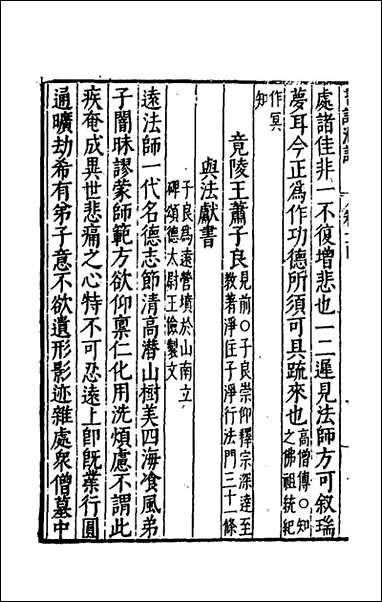 處諸佳非一不復增悲也一二遲見法師方可敘瑞
夢耳今正為作功德所須可具疏來也
高僧傳○知
之佛祖統紀
作冥
知
竟陵王蕭子良
見前○子良崇仰釋宗深達至
教著淨住子淨行法門三十一條
與法獻書
子良為遠營墳於山南立
碑頌德太尉王儉製文
遠法師一代名德志節清高潛山樹美四海飡風弟
子闇昧謬蒙師範方欲仰稟仁化用洗煩慮不謂此
疾奄成異世悲痛之心特不可忍遠上即既業行圓
通曠劫希有弟子意不欲遺形影迹雜處眾僧墓中